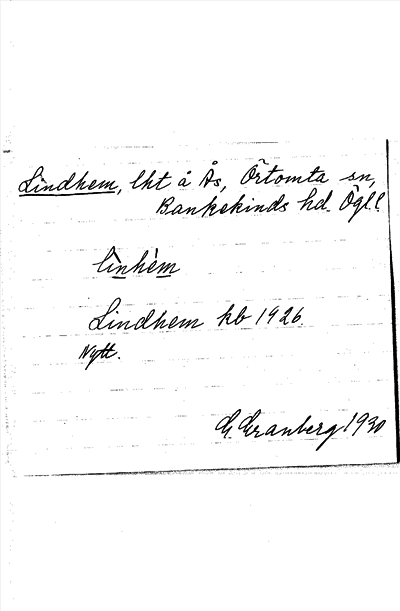 Lindhem, lht å Ås, Örtomta sn,
Bankekinds hd. Ögl.
lìnhèm
Lindhem kb 1926.
Nytt.
G. Granberg 1930